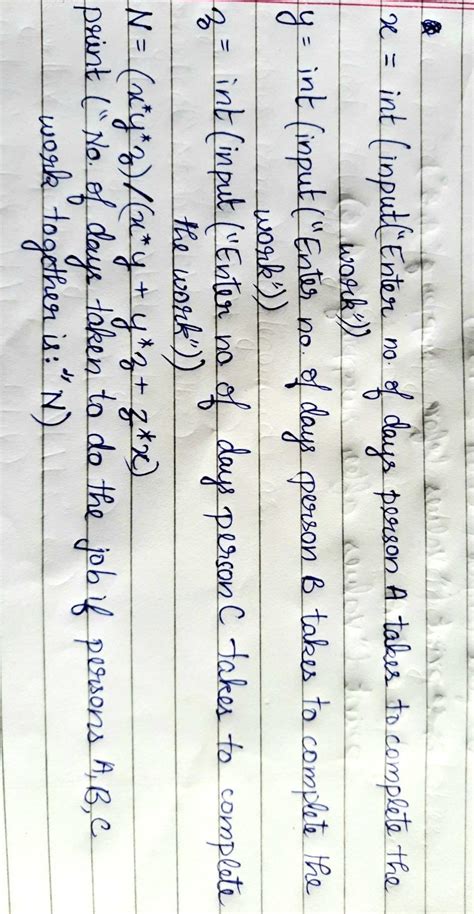 x = int (input("Enter no. of days person A takes to complete the
work"))
y = int (input ("Enter no. of days person B takes to complete the
work"))
z = int (input ("Enter no of days person C takes to complete
the work"))
N = (x*y*z)/(x*y + y*z + z*x)
print ("No. of days taken to do the job if persons A, B, C
work together is:" N)